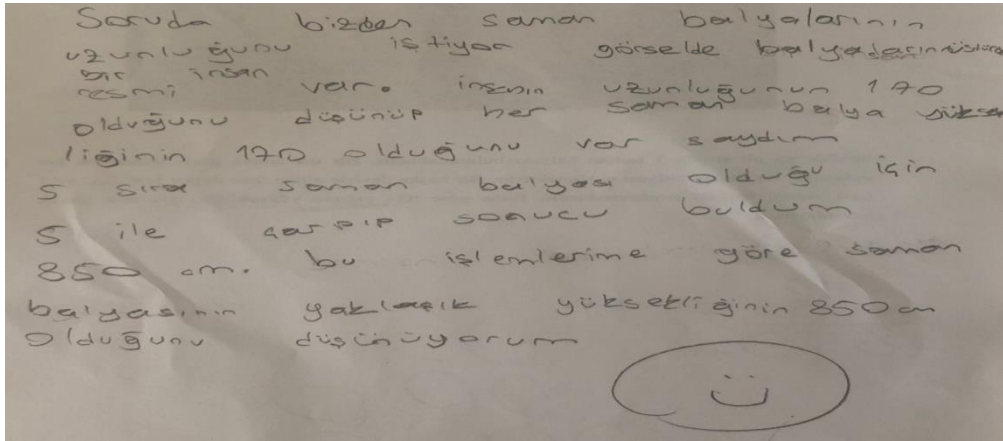 Soruda bizden saman balyalarının
uzunluğunu iştiyor görselde balyaların üstünde
bir insan
resmi var. insanın uzunluğunun 170
olduğunu düşünüp her saman balya yüksek
liğinin 170 olduğunu var saydım
5 sıra saman balyası olduğu için
5 ile çarpıp sonucu buldum
850 cm. bu işlemlerime göre saman
balyasının yaklaşık yüksekliğinin 850 cm
olduğunu düşünüyorum